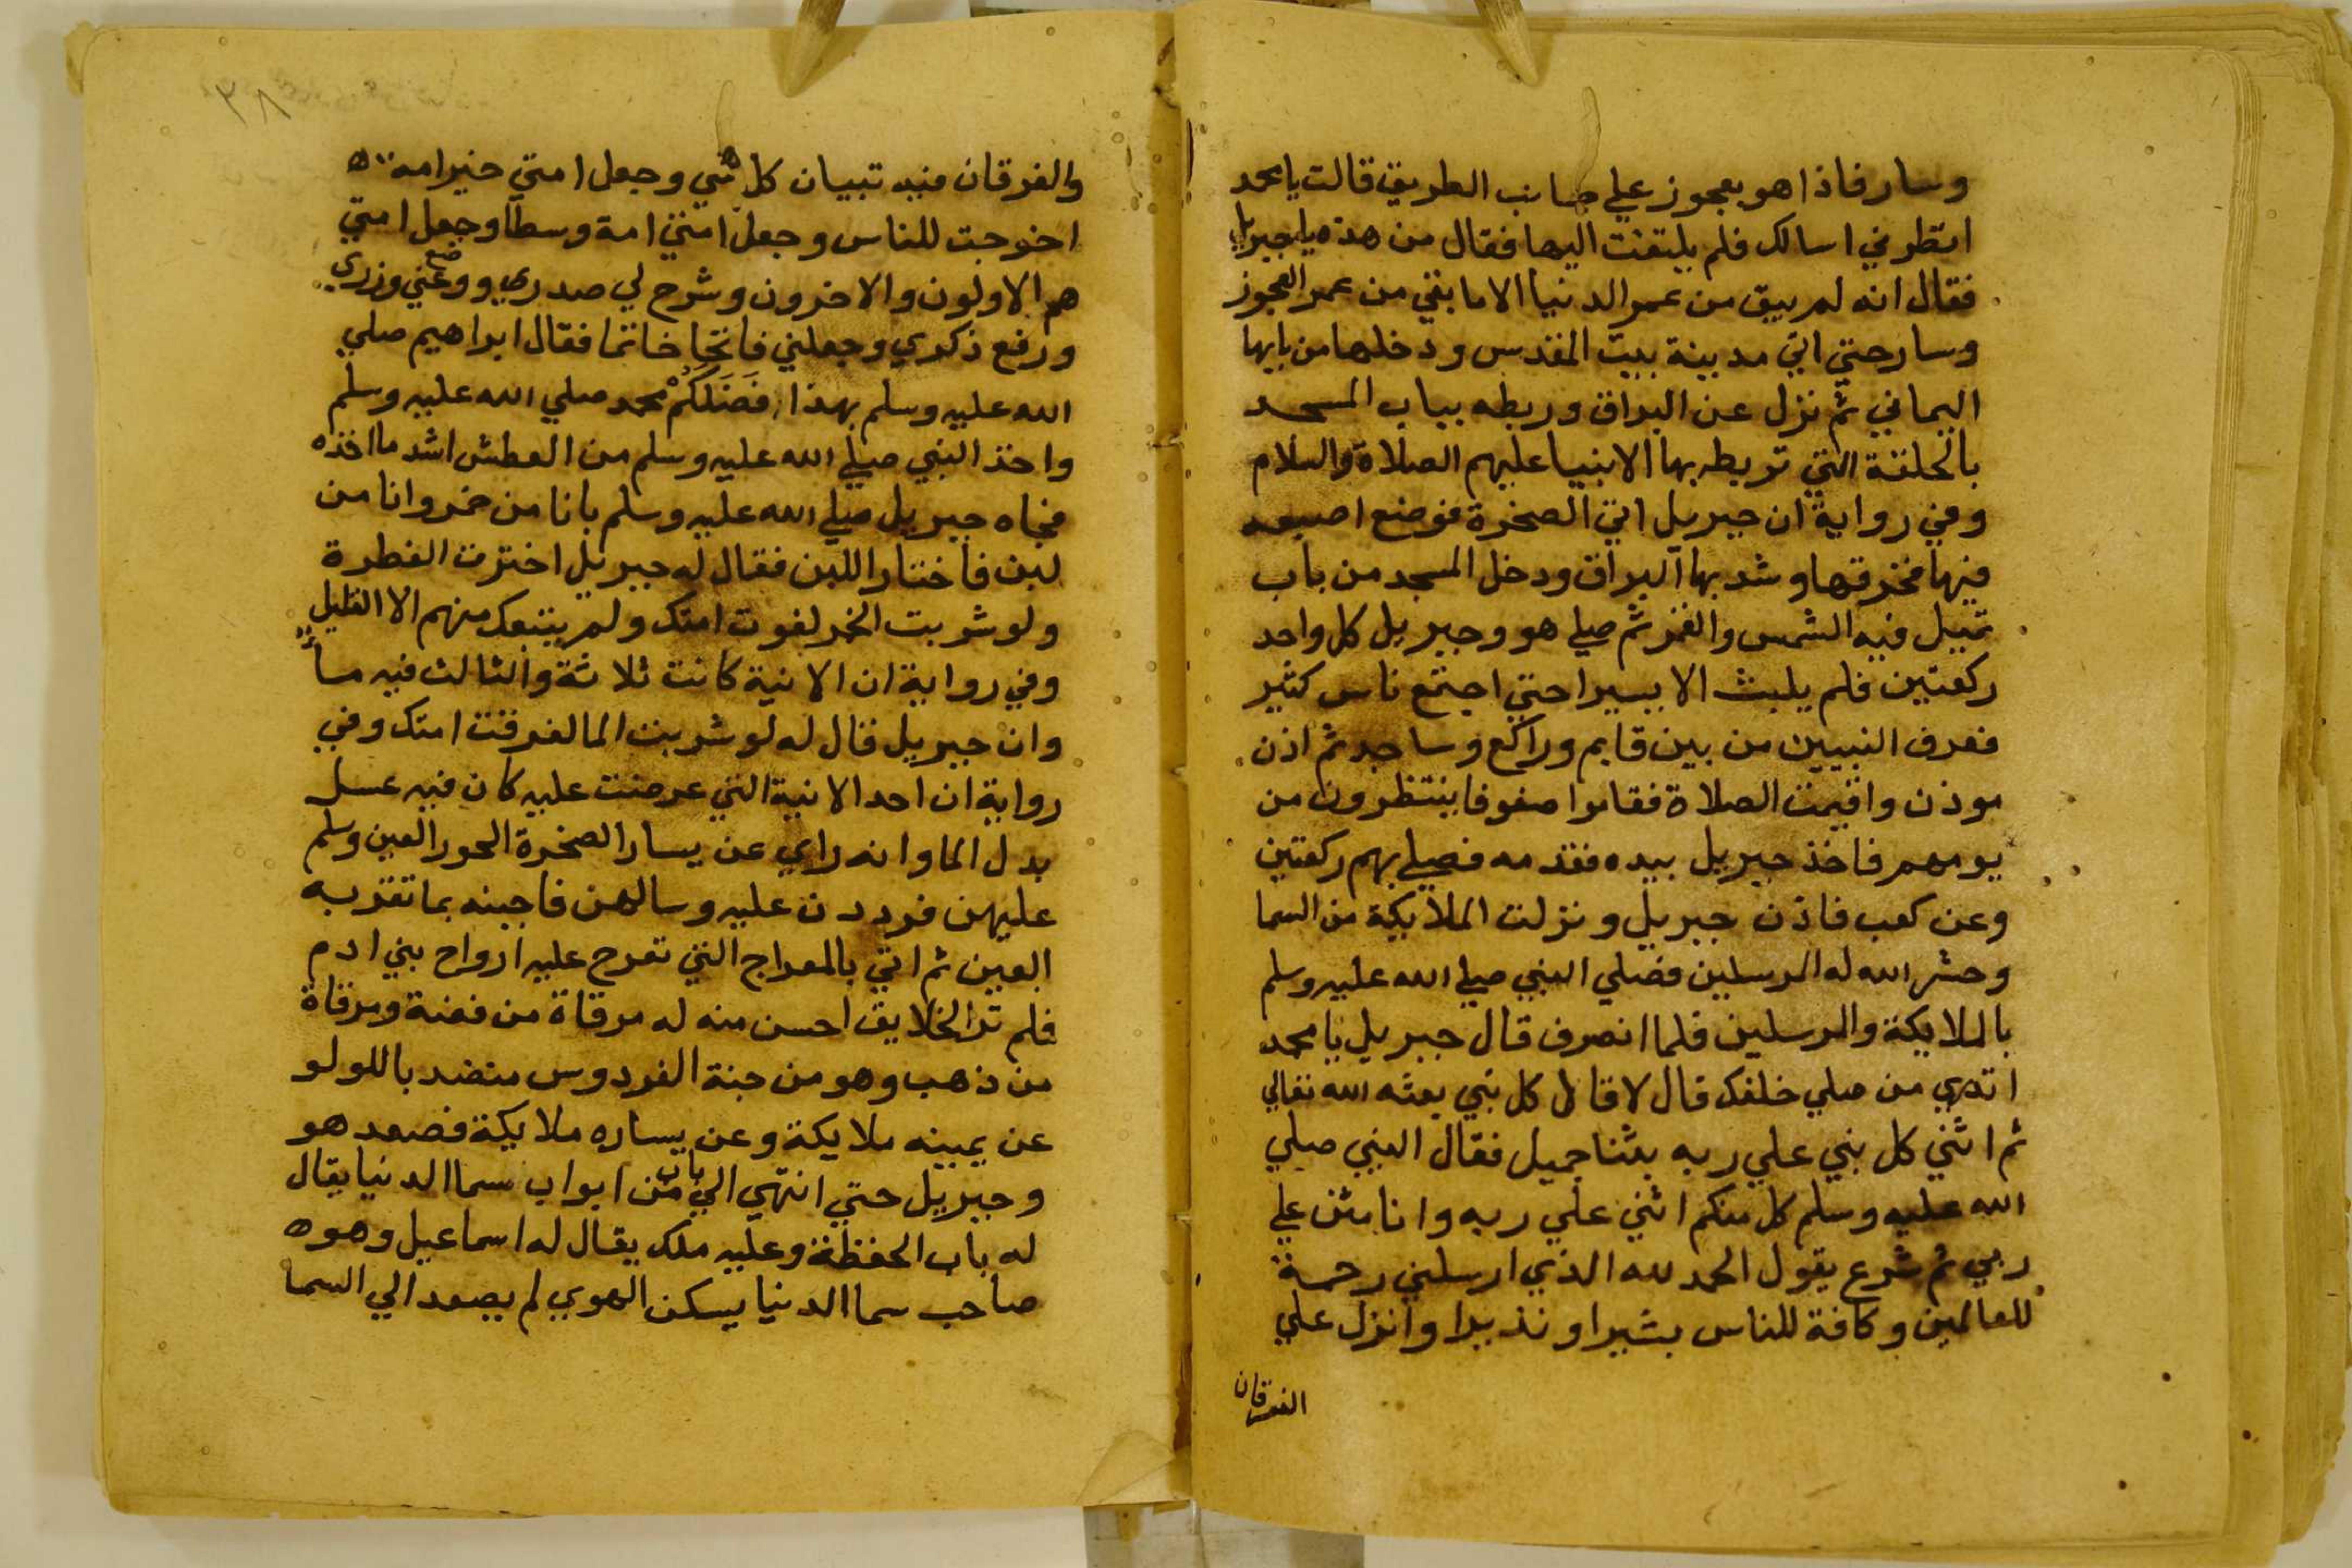 وسار فاذا هو بعجوز علي جانب الطريق قالت يا محمد
انتظرني اسالك فلم يلتفت اليها فقال من هذه يا جبريل
فقال انه لم يبق من عمر الدنيا الا ما بقي من عمر العجوز
وسار حتي اتي مدينة بيت المقدس ودخلها من بابها
اليماني ثم نزل عن البراق وربطه بباب المسجد
بالحلقة التي تربطه بها الانبيا عليهم الصلاة والسلام
وفي رواية ان جبريل اتي الصخرة فوضع اصبعه
فيها فخرقها وشد بها البراق ودخل المسجد من باب
تميل فيه الشمس والقمر ثم صلي هو وجبريل كل واحد
ركعتين فلم يلبث الا يسيرا حتي اجتمع ناس كثير
فعرف النبيين من بين قايم وراكع وساجد ثم اذن
موذن واقيمت الصلاة فقاموا صفوفا ينتظرون من
يومهم فاخذ جبريل بيده فقدمه فصلي بهم ركعتين
وعن كعب فاذن جبريل ونزلت الملايكة من السما
وحشر الله له المرسلين فصلي النبي صلي الله عليه وسلم
بالملايكة والمرسلين فلما انصرف قال جبريل يا محمد
اتدري من صلي خلفك قال لا قال كل نبي بعثه الله تعالي
ثم اثني كل نبي علي ربه بثنا جميل فقال النبي صلي
الله عليه وسلم كل منكم اثني علي ربه وانا مثن علي
ربي ثم شرع يقول الحمد لله الذي ارسلني رحمة
للعالمين وكافة للناس بشيرا ونذيرا وانزل علي
الفرقان
٣٨
والفرقان فيه تبيان كل شي وجعل امتي خير امة
اخرجت للناس وجعل امتي امة وسطا وجعل امتي
هم الاولون والاخرون وشرح لي صدري ووضع عني وزري
ورفع ذكري وجعلني فاتحا خاتما فقال ابراهيم صلي
الله عليه وسلم بهذا فَضَلَكُمْ محمد صلي الله عليه وسلم
واخذ النبي صلي الله عليه وسلم من العطش اشد ما اخذه
فجاه جبريل صلي الله عليه وسلم بانا من خمر وانا من
لبن فاختار اللبن فقال له جبريل اخترت الفطرة
ولو شربت الخمر لغوت امتك ولم يتبعك منهم الا القليل
وفي رواية ان الانية كانت ثلاثة والثالث فيه مآ
وان جبريل قال له لو شربت الما لغرقت امتك وفي
رواية ان احد الانية التي عرضت عليه كان فيه عسل
بدل الما وانه راي عن يسار الصخرة الحور العين وسلم
عليهن فرددن عليه وسالهن فاجبنه بما تقر به
العين ثم اتي بالمعراج التي تعرج عليه ارواح بني ادم
فلم تر الخلايق احسن منه له مرقاة من فضة ومرقاة
من ذهب وهو من جنة الفردوس منضد باللولو
عن يمينه ملايكة وعن يساره ملايكة فصعد هو
وجبريل حتي انتهي الي باب من ابواب سما الدنيا يقال
له باب الحفظة وعليه ملك يقال له اسماعيل وهو
صاحب سما الدنيا يسكن الهوي لم يصعد الي السما